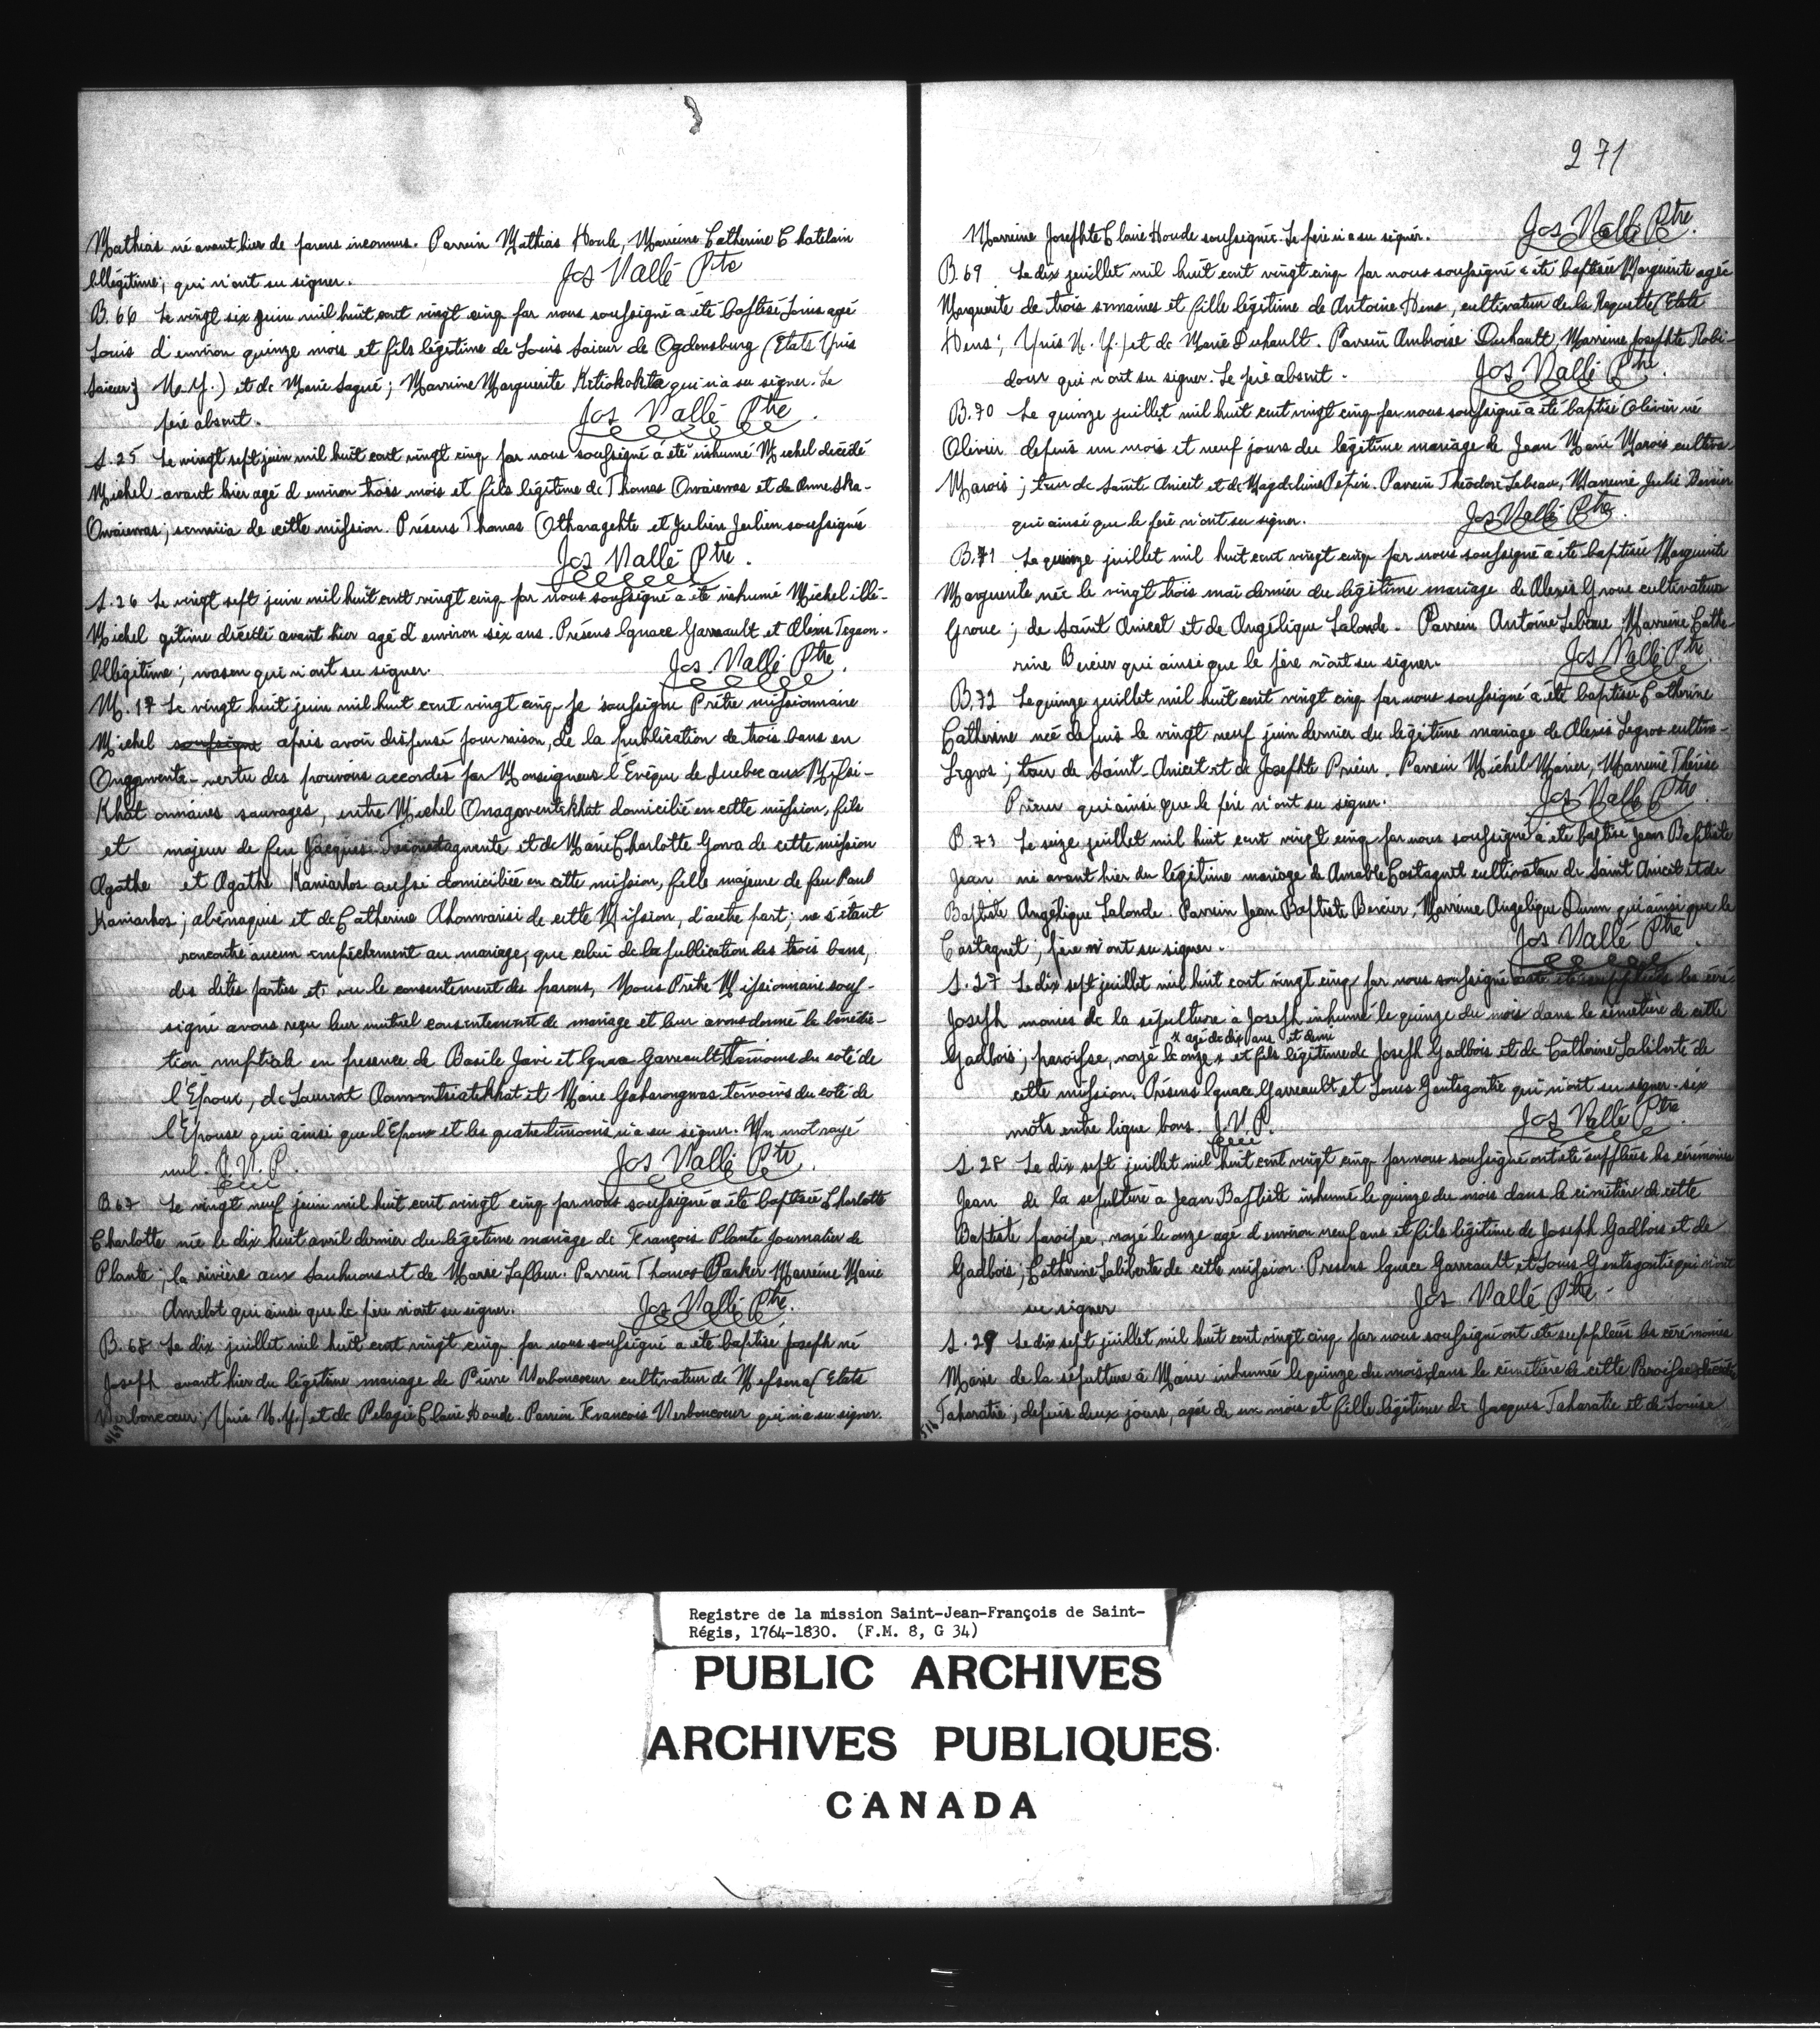 Mathias né avant hier de parens inconnus. Parrein Mathias Houle, Marreine Catherine Chatelain
Illégitime; qui n'ont su signer. Jos Vallé Ptre
B. 66 Le vingt six juin mil huit cent vingt cinq par nous soussigné a été baptisé Louis agé
Louis d'environ quinze mois et fils légitime de Louis Saieur de Ogdensburg (Etats Unis
Saieur; N. Y.) et de Marie Lagué; Marreine Marguerite Ketiokokta qui n'a su signer. Le
père absent. Jos Vallé Ptre.
S. 25 Le vingt sept juin mil huit cent vingt cinq par nous soussigné a été inhumé Michel decédé
Michel avant hier agé d environ trois mois et fils légitime de Thomas Onwaienwas et de Anne Ska-
Onwaienwas; de cette mission. Présens Thomas Otharagehte et Julien Julien soussignés
Jos Vallé Ptre.
S. 26 Le vingt sept juin mil huit cent vingt cinq par nous soussigné a été inhumé Michel illé-
Michel gitime décédé avant hier agé d environ six ans. Présens Ignace Garreault et Alexis Tegaon-
Illégitime; wasen qui n'ont su signer. Jos. Vallé Ptre.
M. 17 Le vingt huit juin mil huit cent vingt cinq Je soussigné Prêtre missionnaire
Michel soussigné après avoir dispensé pour raison, de la publication de trois bans en
Ongowente- vertu des pouvoirs accordés par Monseigneur l'Evêque de Quebec aux Missi-
Khat onnaires sauvages, entre Michel Onagowentekhat domicilié en cette mission, fils
et majeur de feu Jacques et de Marie Charlotte Gowa de cette mission
Agathe et Agathe Kaniarhos aussi domiciliée en cette mission, fille majeure de feu Paul
Kaniarhos; abénaquis et de Catherine Ahonwarisi de cette Mission, d'autre part; ne s'étant
rencontré aucun empêchement au mariage, que celui de la publication des trois bans,
des dites parties et vu le consentement des parens, Nous Prêtre Missionnaire sous-
signé avons reçu leur mutuel consentement de mariage et leur avons donné la bénédic-
tion nuptiale en presence de Basile Javi et Ignace Garreault témoins du coté de
l'Epoux, de Laurent et Marie Gaharongwas témoins du coté de
l'Epouse qui ainsi que l'Epoux et les quatre témoins n'a su signer. Un mot rayé
nul. J. V. P. Jos Vallé Ptre.
B. 67 Le vingt neuf juin mil huit cent vingt cinq par nous soussigné a été baptisée Charlotte
Charlotte née le dix huit avril dernier du légitime mariage de François Plante journalier de
Plante; la rivière aux Saulmons et de Marie Lafleur. Parrein Thomas Parker Marreine Marie
Amelot qui ainsi que le père n'ont su signer. Jos Vallé Ptre.
B. 68 Le dix juillet mil huit cent vingt cinq par nous soussigné a été baptisé Joseph né
Joseph avant hier du légitime mariage de Pierre Verboncoeur cultivateur de Messena (Etats
Verboncoeur; Unis N. Y.) et de Pelagie Claire Houde. Parrein Francois Verboncoeur qui n'a su signer.
271
Marreine Josephte Claire Houde soussignée. Le père n'a su signer. Jos Vallé Ptre.
B. 69 Le dix juillet mil huit cent vingt cinq par nous soussigné a été baptisée Marguerite agée
Marguerite de trois semaines et fille légitime de Antoine Hens, cultivateur de la Raquette (Etats
Hens; Unis N. Y.) et de Marie Duhault. Parrein Ambroise Duhault; Marreine Josephte Robi-
doux qui n'ont su signer. Le père absent. Jos Vallé Ptre.
B. 70 Le quinze juillet mil huit cent vingt cinq par nous soussigné a été baptisé Olivier né
Olivier depuis un mois et neuf jours du légitime mariage de Jean Marie Marois cultiva-
Marois; teur de Sainte Anicet et de Magdeleine Pepin. Parrein Theodore Lebeau, Marreine Julie Dernier
qui ainsi que le père n'ont su signer. Jos Vallé Ptre.
B. 71 Le quinze juillet mil huit cent vingt cinq par nous soussigné a été baptisée Marguerite
Marguerite née le vingt trois mai dernier du légitime mariage de Alexis Groux cultivateur
Groux; de Saint Anicet et de Angélique Lalonde. Parrein Antoine Lebeau Marreine Cathe-
rine Bercier qui ainsi que le père n'ont su signer. Jos Vallé Ptre.
B. 72 Le quinze juillet mil huit cent vingt cinq par nous soussigné a été baptisée Catherine
Catherine née depuis le vingt neuf juin dernier du légitime mariage de Alexis Legros cultiva-
Legros; teur de Saint-Anicet et de Josephte Prieur. Parrein Michel Marier, Marreine Thérèse
Prieur qui ainsi que le père n'ont su signer. Jos Vallé Ptre.
B. 73 Le seize juillet mil huit cent vingt cinq par nous soussigné a été baptisé Jean Baptiste
Jean né avant hier du légitime mariage de Amable Castagnet cultivateur de Saint Anicet et de
Baptiste Angélique Lalonde. Parrein Jean Baptiste Bercier, Marreine Angelique Dunn qui ainsi que le
Castagnet; père n'ont su signer. Jos Vallé Ptre.
S. 27 Le dix sept juillet mil huit cent vingt cinq par nous soussigné les céré
Joseph monies de la sépulture à Joseph inhumé le quinze du mois dans le cimetière de cette
x agé de dix ans et demi
Gadbois; paroisse, noyé le onze x et fils légitime de Joseph Gadbois et de Catherine Laliberté de
cette mission. Présens Ignace Garreault et Louis Gentsgontie qui n'ont su signer. six
mots entre ligne bons. J. V. P. Jos Vallé Ptre.
S. 28 Le dix sept juillet mil huit cent vingt cinq par nous soussigné ont été suppléés les cérémonies
Jean de la sepulture à Jean Baptiste inhumé le quinze du mois dans le cimetière de cette
Baptiste paroisse, noyé le onze agé d environ neuf ans et fils légitime de Joseph Gadbois et de
Gadbois; Catherine Laliberté de cette mission. Presens Ignace Garreault et Louis Gentsgontie qui n'ont
su signer Jos Vallé Ptre.
S. 29 Le dix sept juillet mil huit cent vingt cinq par nous soussigné ont été suppléés les cérémonies
Marie de la sépulture à Marie inhumée le quinze du mois, dans le cimetière de cette Paroisse décédée
Taharatie; depuis deux jours, agée de un mois et fille légitime de Jacques Taharatie et de Louise
Registre de la mission Saint-Jean-François de Saint-
Régis, 1764-1830. (F.M. 8, G 34)
PUBLIC ARCHIVES
ARCHIVES PUBLIQUES
CANADA